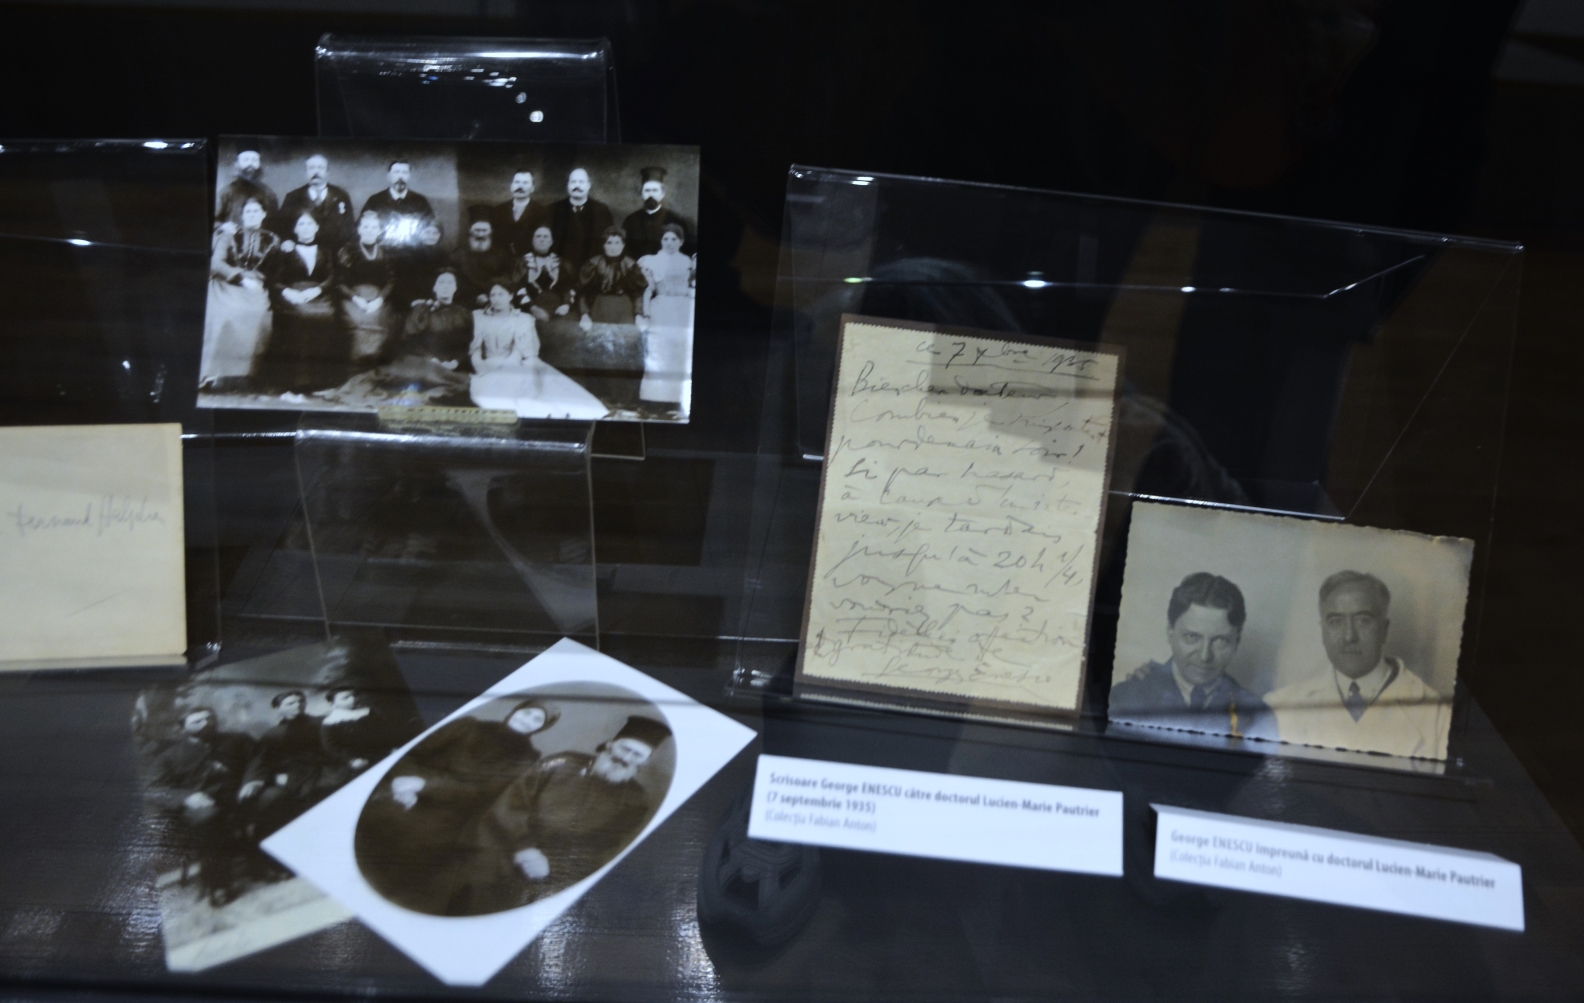 Fernand
ce 7 7bre 1935
Bien cher docteur
Combien
pour demain soir!
Si par hasard,
à
view je tardais
jusqu'à 20h 1/4,
pas?
Fidèle affection
gratitude de
George Enesco
Scrisoare George ENESCU către doctorul Lucien-Marie Pautrier
(7 septembrie 1935)
(Colecția Fabian Anton)
George ENESCU împreună cu doctorul Lucien-Marie Pautrier
(Colecția Fabian Anton)